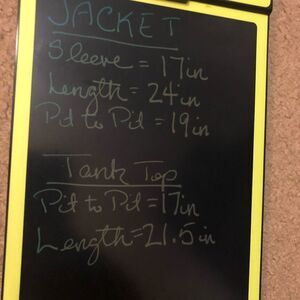 JACKET
Sleeve = 17in
Length = 24in
Pit to Pit = 19in
Tank Top
Pit to Pit = 17in
Length = 21.5in